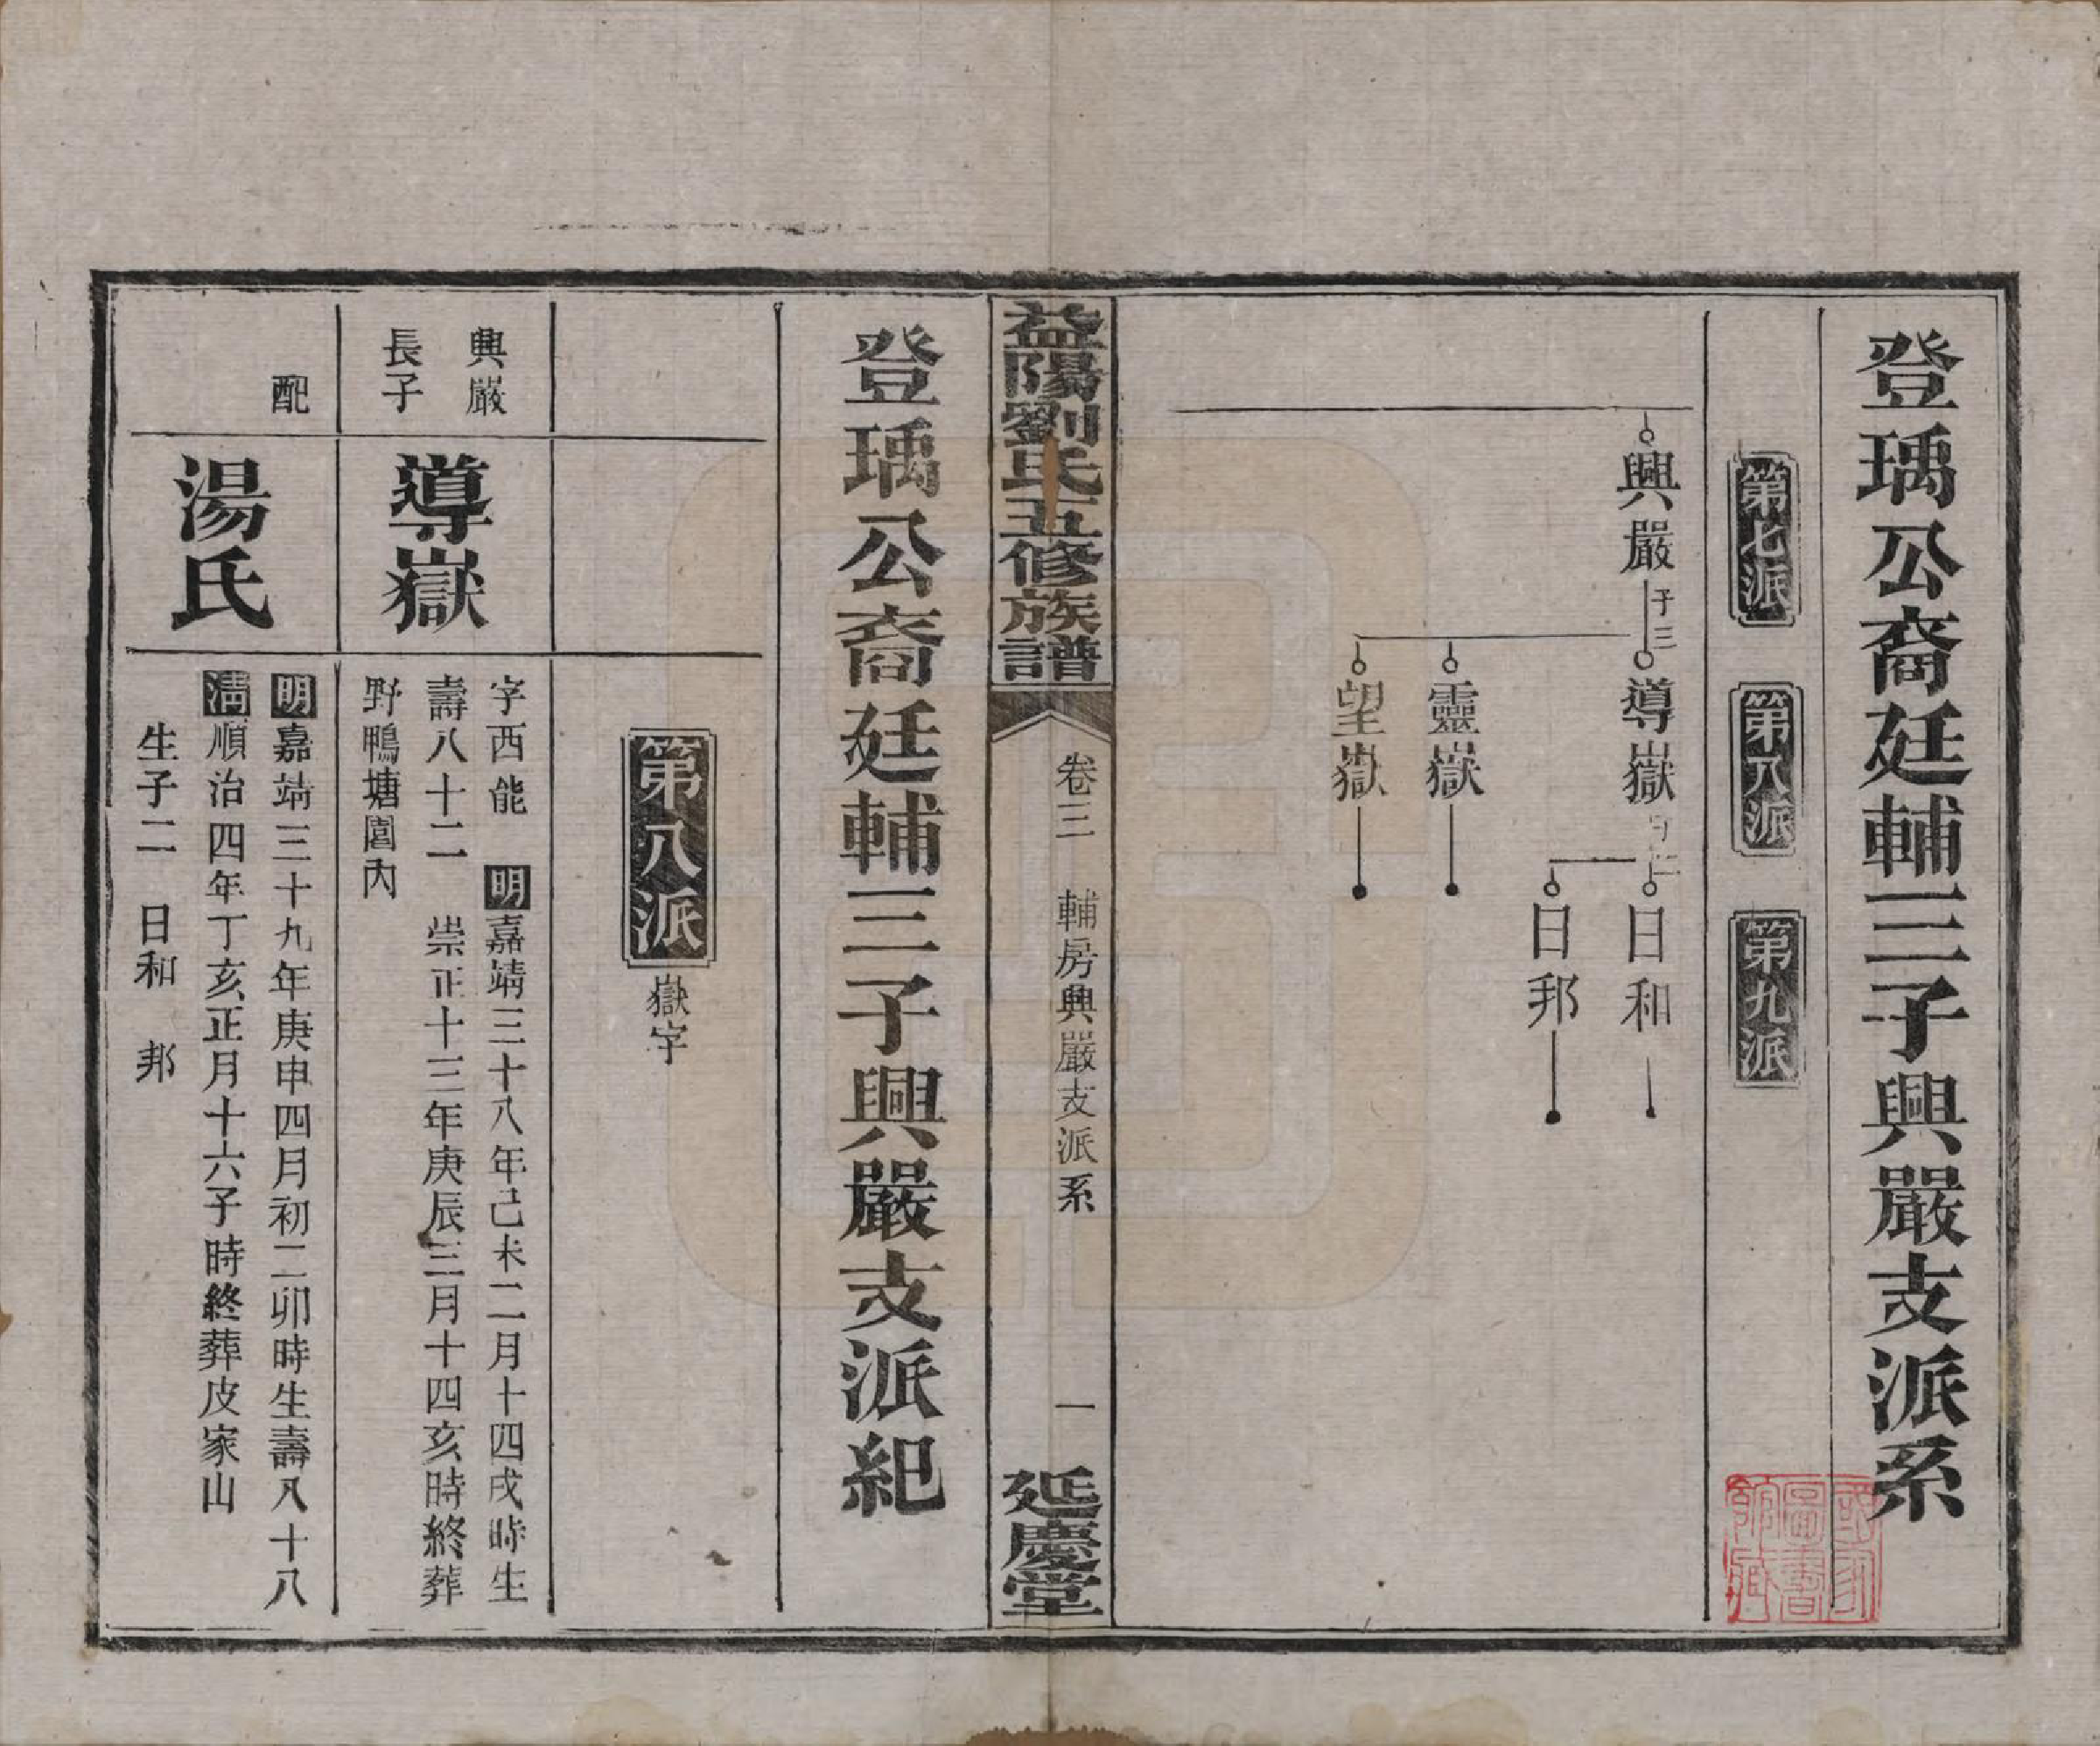 登瑀公裔廷輔三子興嚴支派系
第七派
第八派
第九派
興嚴 子三
導嶽
日和
日邦
靈嶽
望嶽
益陽劉氏五修族譜
卷三 輔房興嚴支派系
一
延慶堂
登瑀公裔廷輔三子興嚴支派紀
第八派 嶽字
興巖
長子
導嶽
字西能 明嘉靖三十八年己未二月十四戌時生
壽八十二 崇正十三年庚辰三月十四亥時終葬
野鴨塘圍內
配
湯氏
明嘉靖三十九年庚申四月初二卯時生壽八十八
清順治四年丁亥正月十六子時終葬皮家山
生子二 日和 邦
國家
圖書
館藏